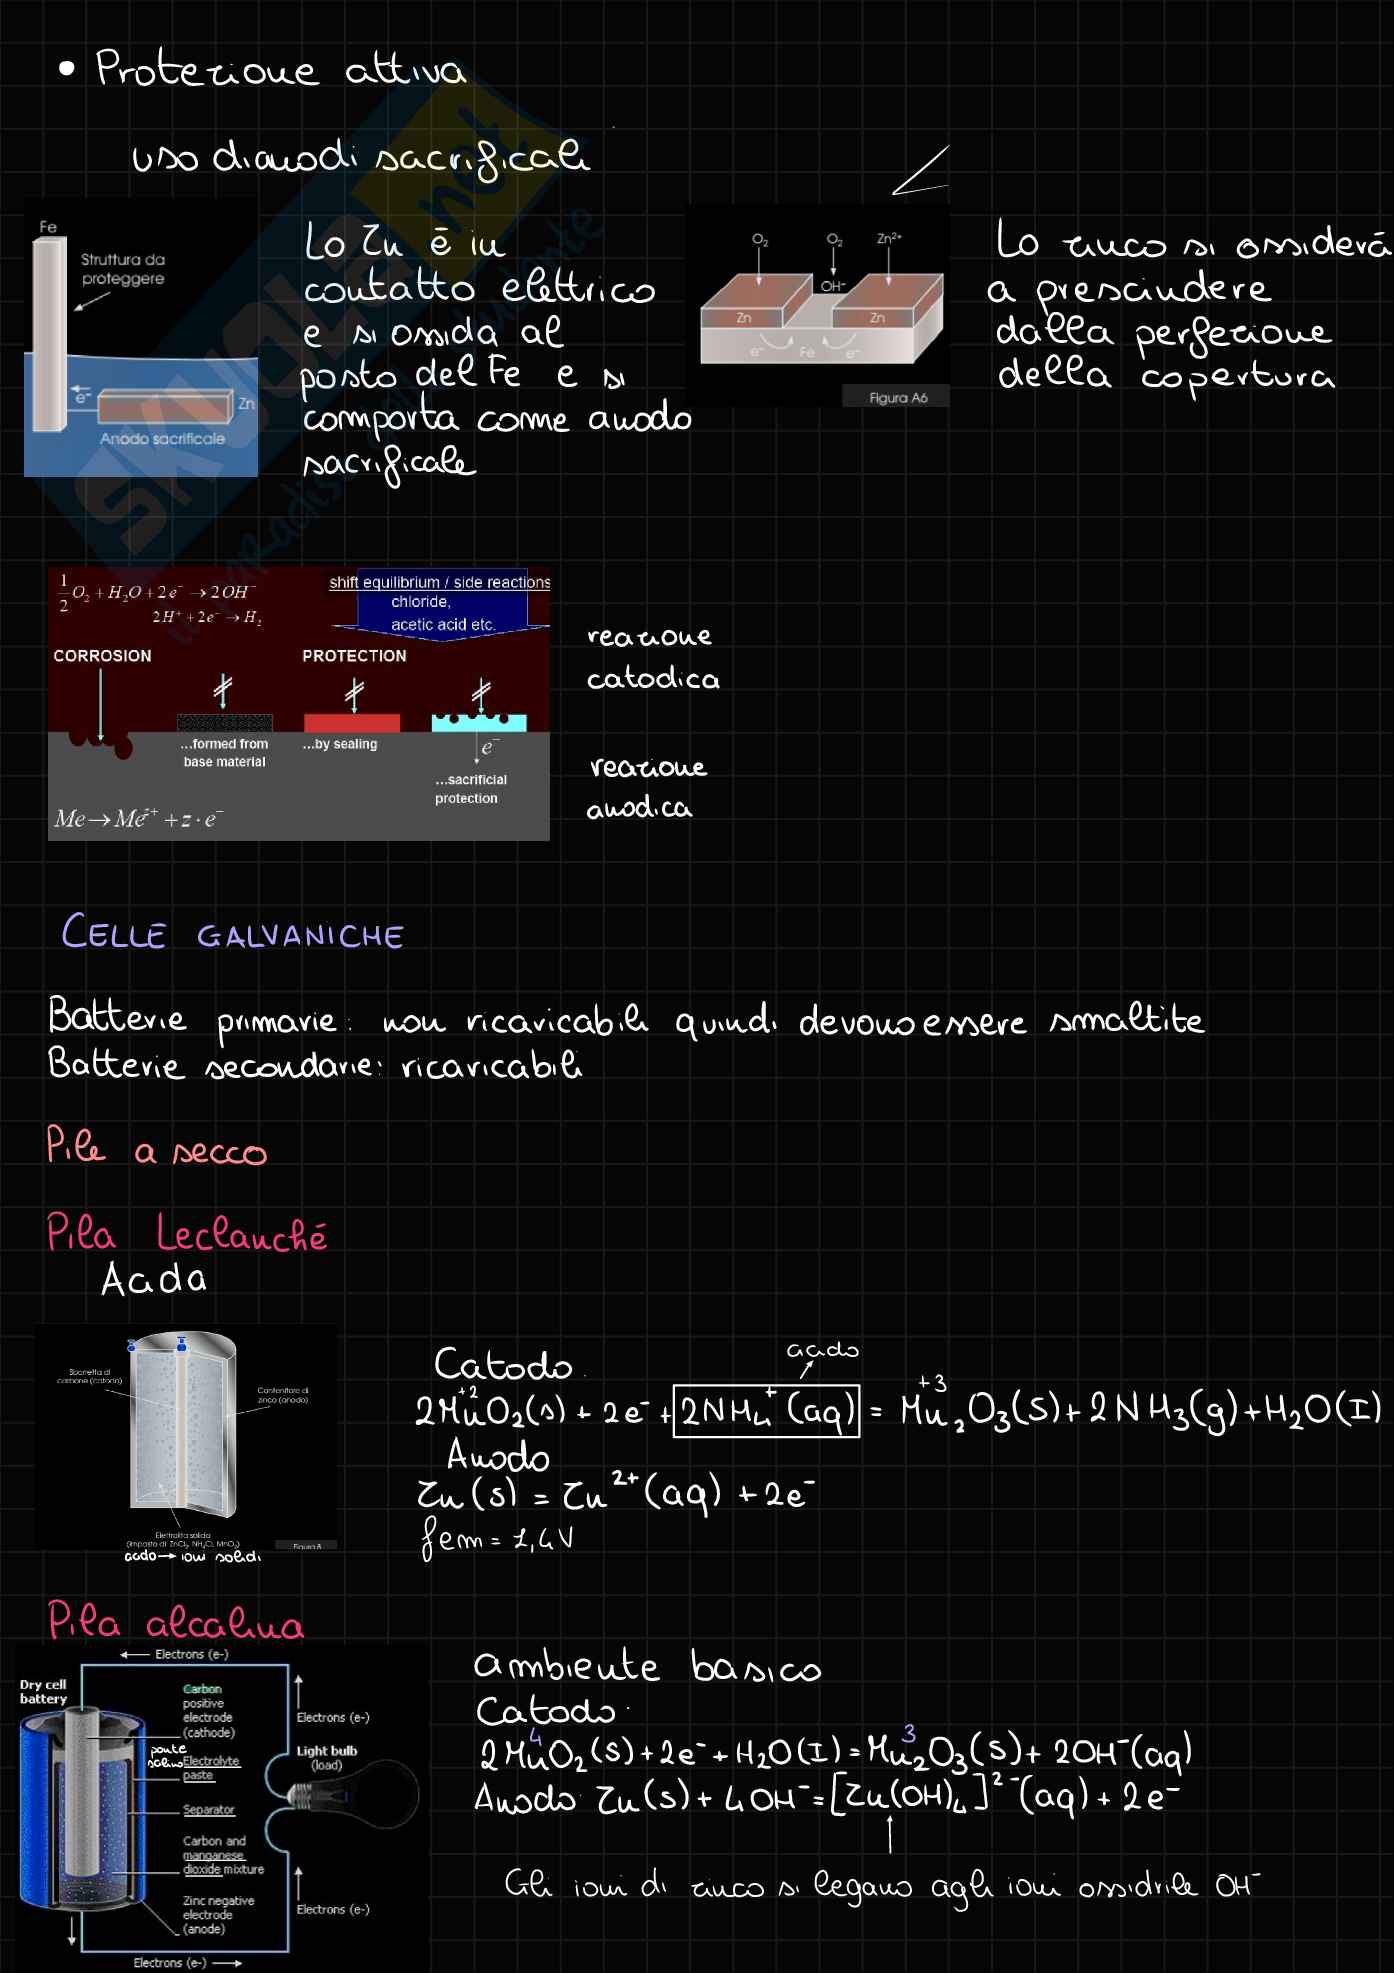 • Protezione attiva
uso di anodi sacrificali
Fe
Struttura da
proteggere
e⁻
Zn
Anodo sacrificale
Lo Zn è in
contatto elettrico
e si ossida al
posto del Fe e si
comporta come anodo
sacrificale
O₂ O₂ Zn²⁺
OH⁻
Zn Zn
e⁻ Fe e⁻
Figura A6
Lo zinco si ossiderà
a prescindere
dalla perfezione
della copertura
SKUOLA.net
il paradiso dello studente
1/2 O₂ + H₂O + 2e⁻ → 2OH⁻
2H⁺ + 2e⁻ → H₂
shift equilibrium / side reactions
chloride,
acetic acid etc.
CORROSION PROTECTION
...formed from
base material
...by sealing
e⁻
...sacrificial
protection
Me → Meᶻ⁺ + z · e⁻
reazione
catodica
reazione
anodica
CELLE GALVANICHE
Batterie primarie: non ricaricabili quindi devono essere smaltite
Batterie secondarie: ricaricabili
Pile a secco
Pila Leclanché
Acida
Bacchetta di
carbone (catodo)
Contenitore di
zinco (anodo)
Elettrolita solido
(impasto di ZnCl₂, NH₄Cl, MnO₂)
Figura 8
acido → ioni solidi
Catodo
acido
+2 +3
2MnO₂(s) + 2e⁻ + 2NH₄⁺(aq) = Mn₂O₃(s) + 2NH₃(g) + H₂O(l)
Anodo
Zn(s) = Zn²⁺(aq) + 2e⁻
fem = 1,4V
Pila alcalina
Electrons (e-)
Dry cell
battery
Carbon
positive
electrode
(cathode)
ponte
salino
Electrolyte
paste
Separator
Carbon and
manganese
dioxide mixture
Zinc negative
electrode
(anode)
Electrons (e-)
Light bulb
(load)
Electrons (e-)
Electrons (e-)
ambiente basico
Catodo:
4 3
2MnO₂(s) + 2e⁻ + H₂O(l) = Mn₂O₃(s) + 2OH⁻(aq)
Anodo: Zn(s) + 4OH⁻ = [Zn(OH)₄]²⁻(aq) + 2e⁻
Gli ioni di zinco si legano agli ioni ossidrile OH⁻